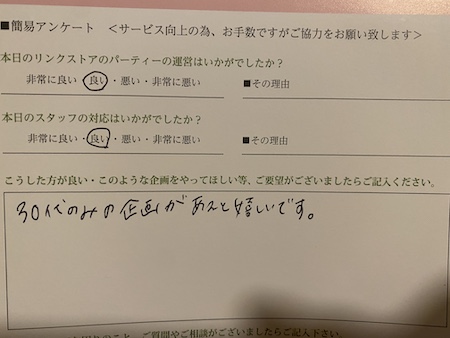 ■簡易アンケート　＜サービス向上の為、お手数ですがご協力をお願い致します＞
本日のリンクストアのパーティーの運営はいかがでしたか？
非常に良い・良い・悪い・非常に悪い　■その理由
本日のスタッフの対応はいかがでしたか？
非常に良い・良い・悪い・非常に悪い　■その理由
こうした方が良い・このような企画をやってほしい等、ご要望がございましたらご記入ください。
30代のみの企画があると嬉しいです。
ご質問やご相談がございましたらご記入下さい。